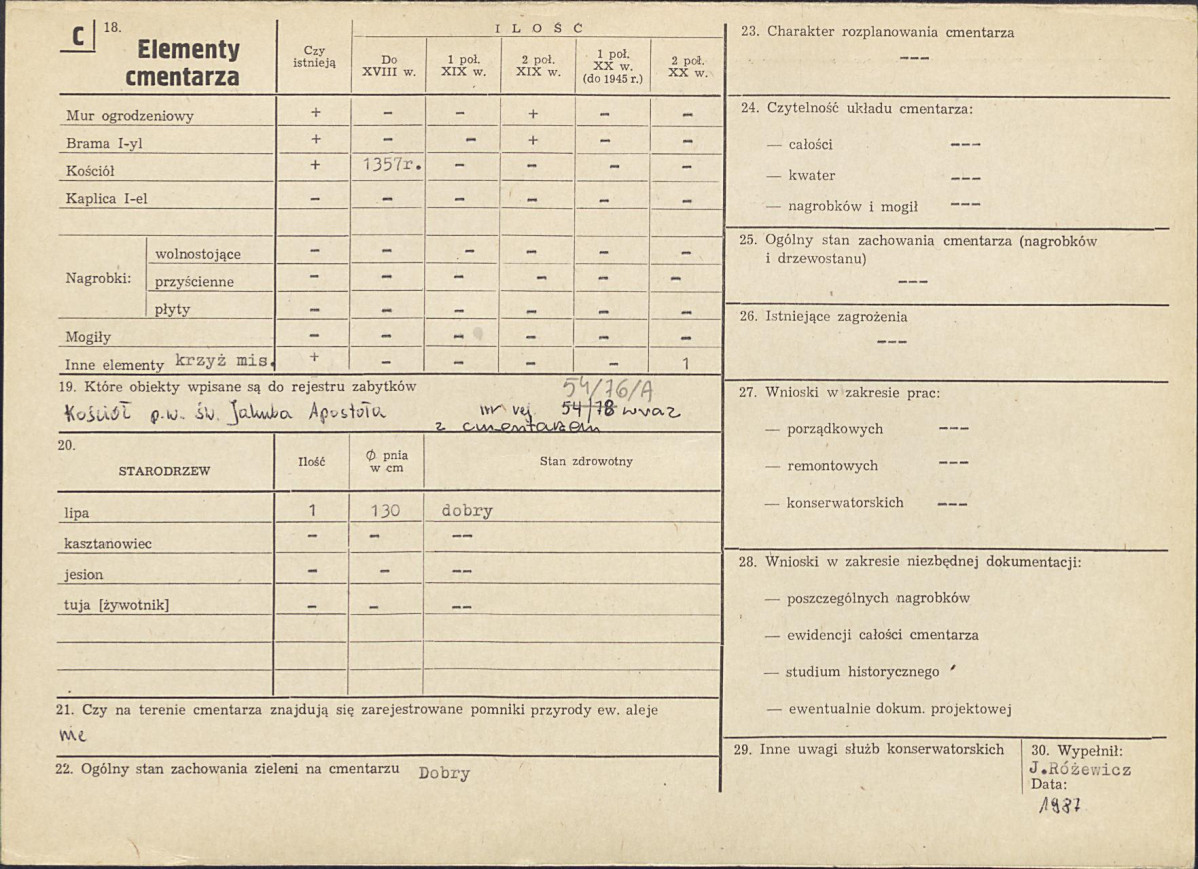 C 18.
Elementy
cmentarza
Czy
istnieją
I L O Ś Ć
Do
XVIII w.
1 poł.
XIX w.
2 poł.
XIX w.
1 poł.
XX w.
(do 1945 r.)
2 poł.
XX w.
Mur ogrodzeniowy + - - + - -
Brama I-yl + - - + - -
Kościół + 1357r. - - - -
Kaplica I-el - - - - - -
Nagrobki:
wolnostojące - - - - - -
przyścienne - - - - - -
płyty - - - - - -
Mogiły - - - - - -
Inne elementy krzyż mis. + - - - - 1
19. Które obiekty wpisane są do rejestru zabytków 54/76/A
Kościół p.w. św. Jakuba Apostoła nr rej. 54/78 wraz
z cmentarzem
20.
STARODRZEW
Ilość
Ø pnia
w cm
Stan zdrowotny
lipa 1 130 dobry
kasztanowiec - - --
jesion - - --
tuja [żywotnik] - - --
21. Czy na terenie cmentarza znajdują się zarejestrowane pomniki przyrody ew. aleje
nie
22. Ogólny stan zachowania zieleni na cmentarzu Dobry
23. Charakter rozplanowania cmentarza
---
24. Czytelność układu cmentarza:
— całości ---
— kwater ---
— nagrobków i mogił ---
25. Ogólny stan zachowania cmentarza (nagrobków
i drzewostanu)
---
26. Istniejące zagrożenia
---
27. Wnioski w zakresie prac:
— porządkowych ---
— remontowych ---
— konserwatorskich ---
28. Wnioski w zakresie niezbędnej dokumentacji:
— poszczególnych nagrobków
— ewidencji całości cmentarza
— studium historycznego
— ewentualnie dokum. projektowej
29. Inne uwagi służb konserwatorskich
30. Wypełnił:
J.Różewicz
Data:
1987